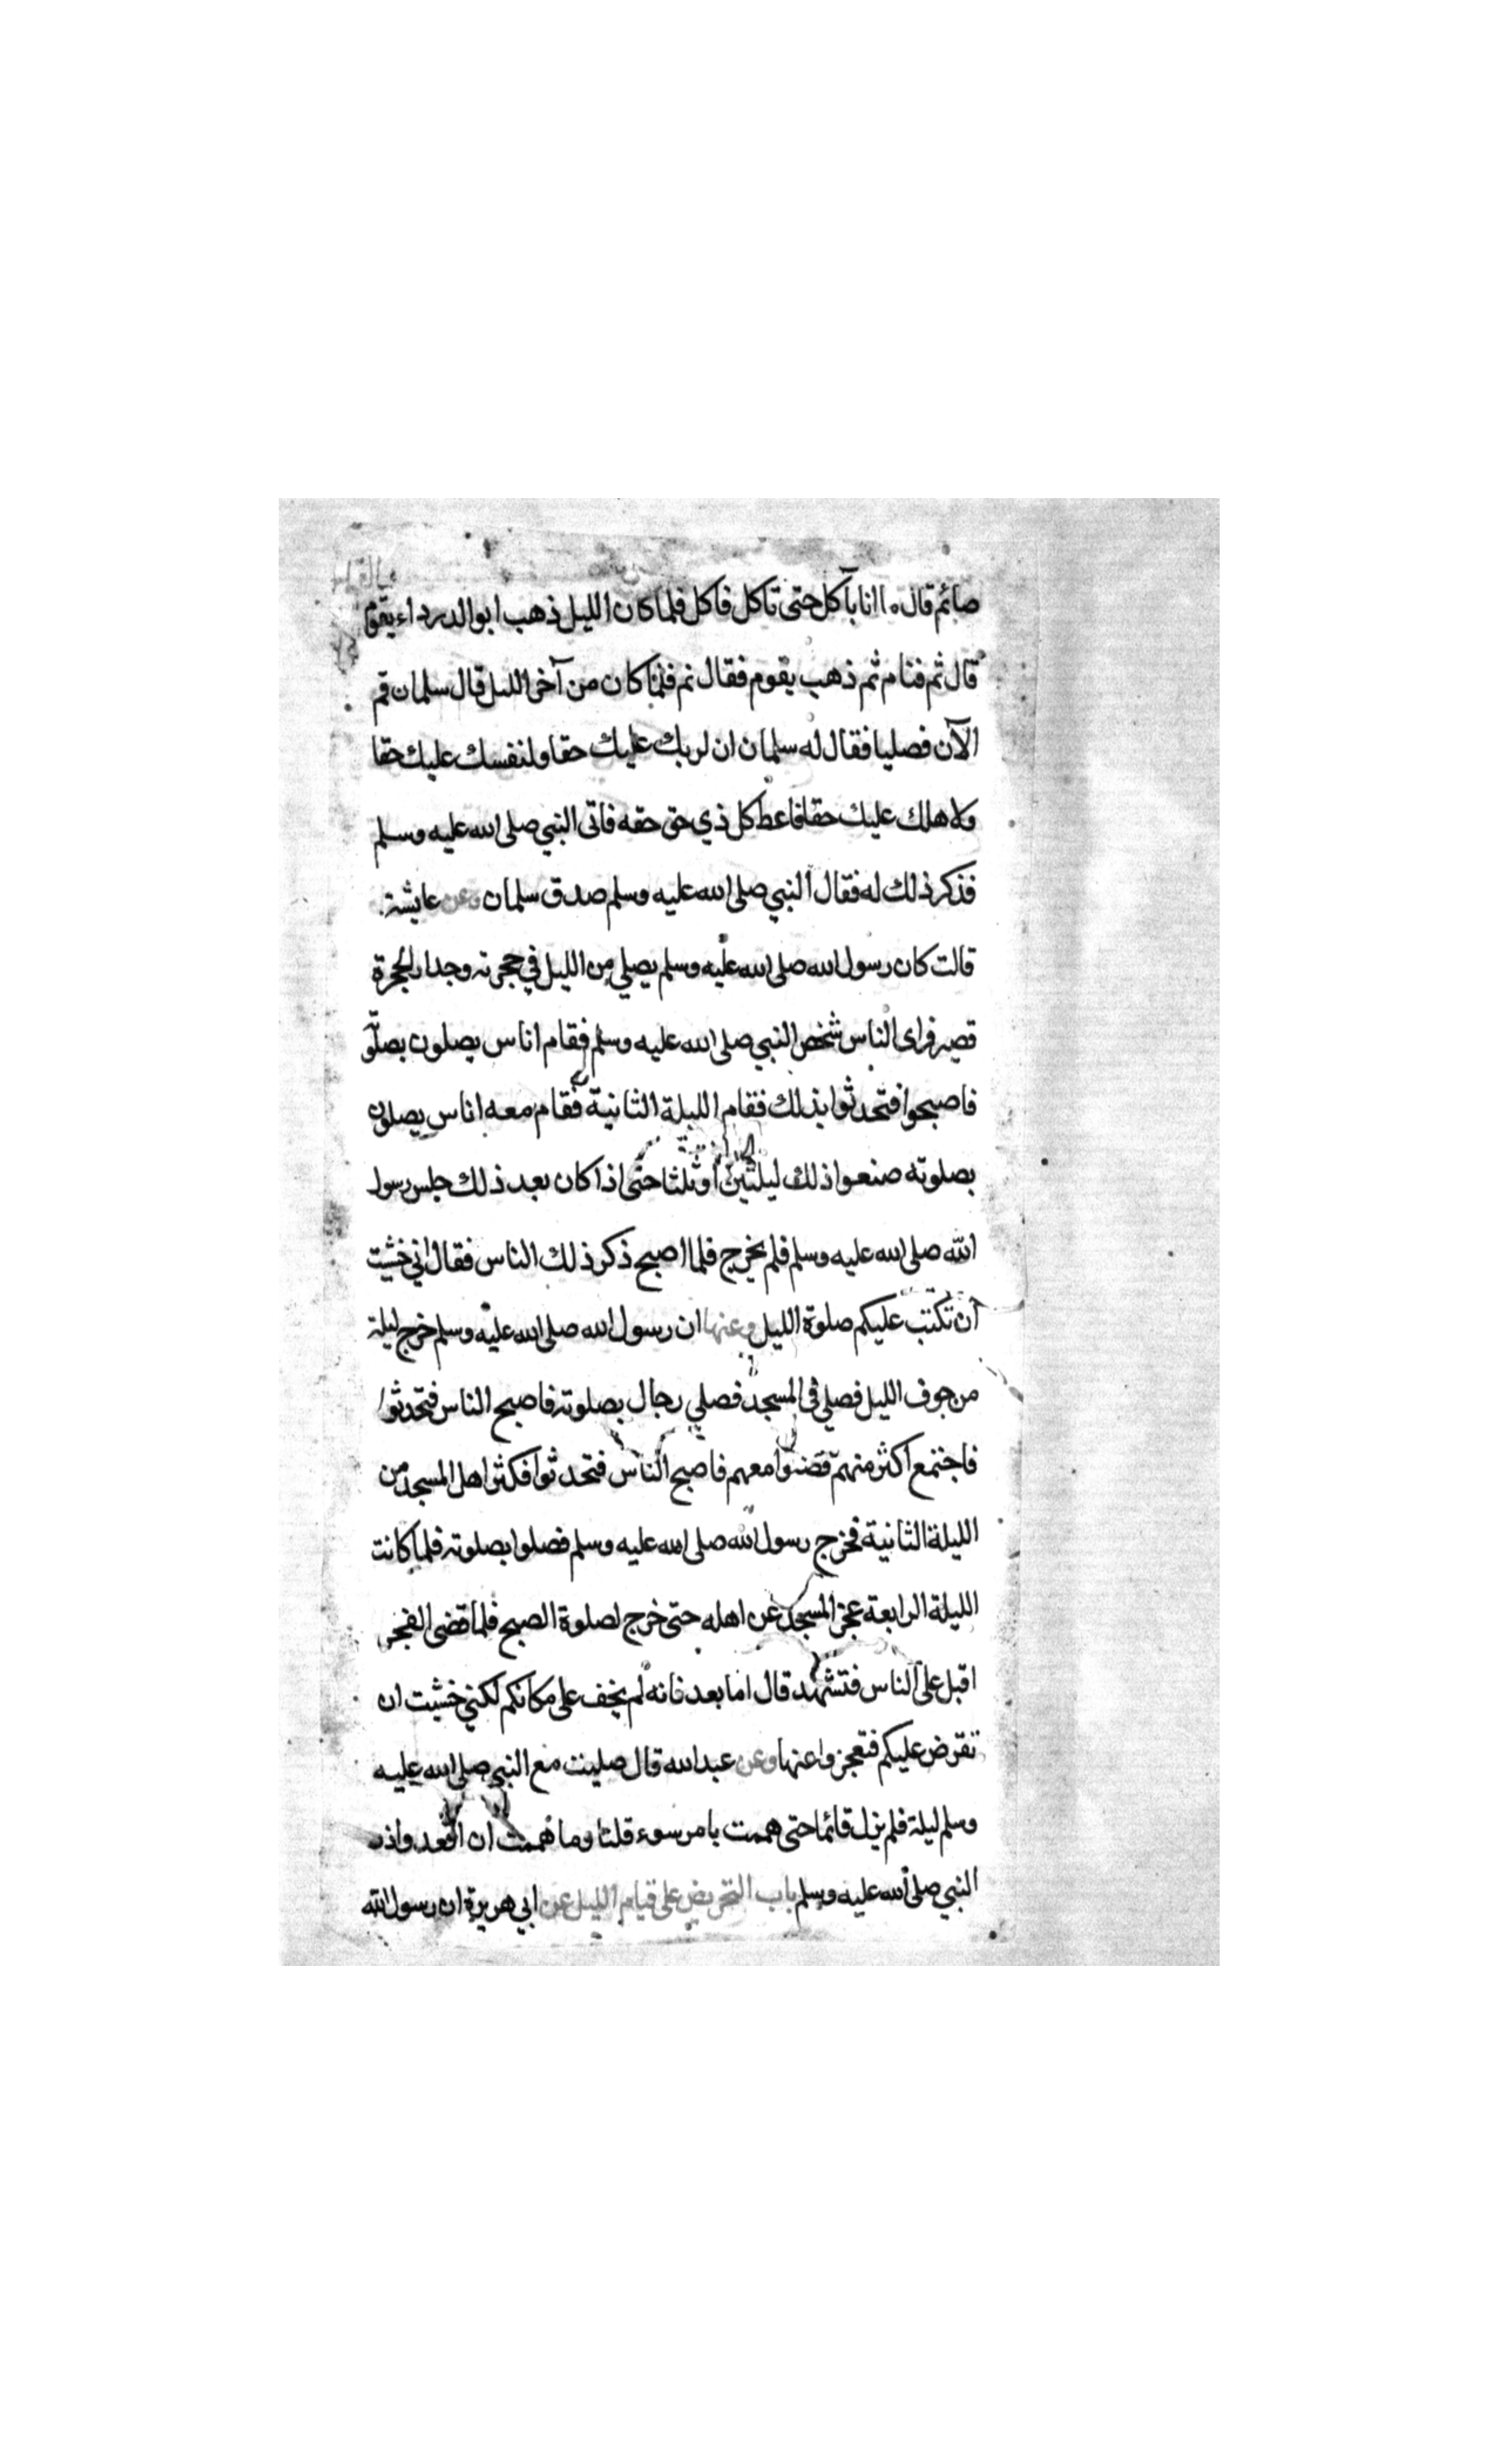 صائم قال ما انا بآكل حتى تاكل فاكل فلما كان الليل ذهب ابو الدرداء يقوم
قال ثم فنام ثم ذهب يقوم فقال نم فلما كان من آخر الليل قال سلمان قم
الآن فصليا فقال له سلمان ان لربك عليك حقا ولنفسك عليك حقا
ولاهلك عليك حقا فاعط كل ذي حق حقه فاتى النبي صلى الله عليه وسلم
فذكر ذلك له فقال النبي صلى الله عليه وسلم صدق سلمان وعن عايشة
قالت كان رسول الله صلى الله عليه وسلم يصلي من الليل في حجرته وجدار الحجرة
قصير فراى الناس شخص النبي صلى الله عليه وسلم فقام اناس يصلون بصلوته
فاصبحوا فتحدثوا بذلك فقام الليلة الثانية فقام معه اناس يصلون
بصلوته صنعوا ذلك ليلتين او ثلثا حتى اذا كان بعد ذلك جلس رسول
الله صلى الله عليه وسلم فلم يخرج فلما اصبح ذكر ذلك الناس فقال اني خشيت
ان تكتب عليكم صلوة الليل وعنها ان رسول الله صلى الله عليه وسلم خرج ليلة
من جوف الليل فصلى في المسجد فصلي رجال بصلوته فاصبح الناس فتحدثوا
فاجتمع اكثر منهم معهم فاصبح الناس فتحدثوا فكثر اهل المسجد من
الليلة الثانية فخرج رسول الله صلى الله عليه وسلم فصلوا بصلوته فلما كانت
الليلة الرابعة عجز المسجد عن اهله حتى خرج لصلوة الصبح فلما قضى الفجر
اقبل على الناس فتشهد قال اما بعد فانه لم يخف على مكانكم لكني خشيت ان
تفرض عليكم فتعجزوا عنها وعن عبد الله قال صليت مع النبي صلى الله عليه
وسلم ليلة فلم يزل قائما حتى هممت بامر سوء قلنا وما هممت ان اقعد واذر
النبي صلى الله عليه وسلم باب التحريض على قيام الليل عن ابي هريرة ان رسول الله